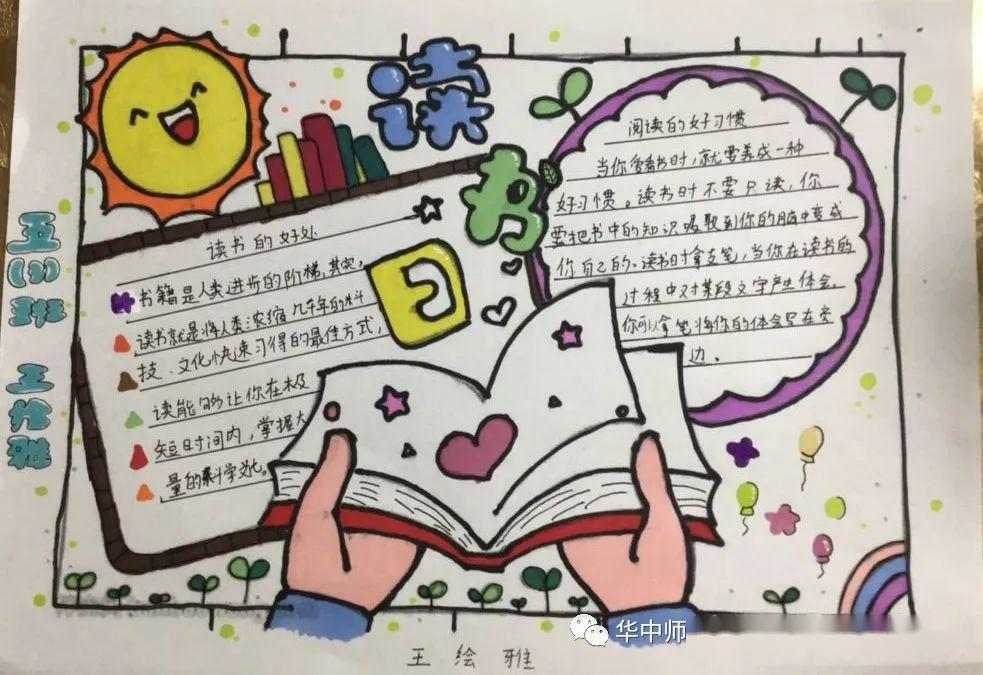 读书
五(3)班 王绘雅
读书的好处
书籍是人类进步的阶梯,其实,
读书就是将人类浓缩几千年的科
技、文化快速习得的最佳方式,
读能够让你在极
短时间内,掌握大
量的科学文化。
阅读的好习惯
当你看书时,就要养成一种
好习惯。读书时不要只读,你
要把书中的知识吸取到你的脑中变成
你自己的。读书时拿支笔,当你在读书的
过程中对某段文字产生体会,
你可以拿笔将你的体会写在旁
边。
华中师
王绘雅